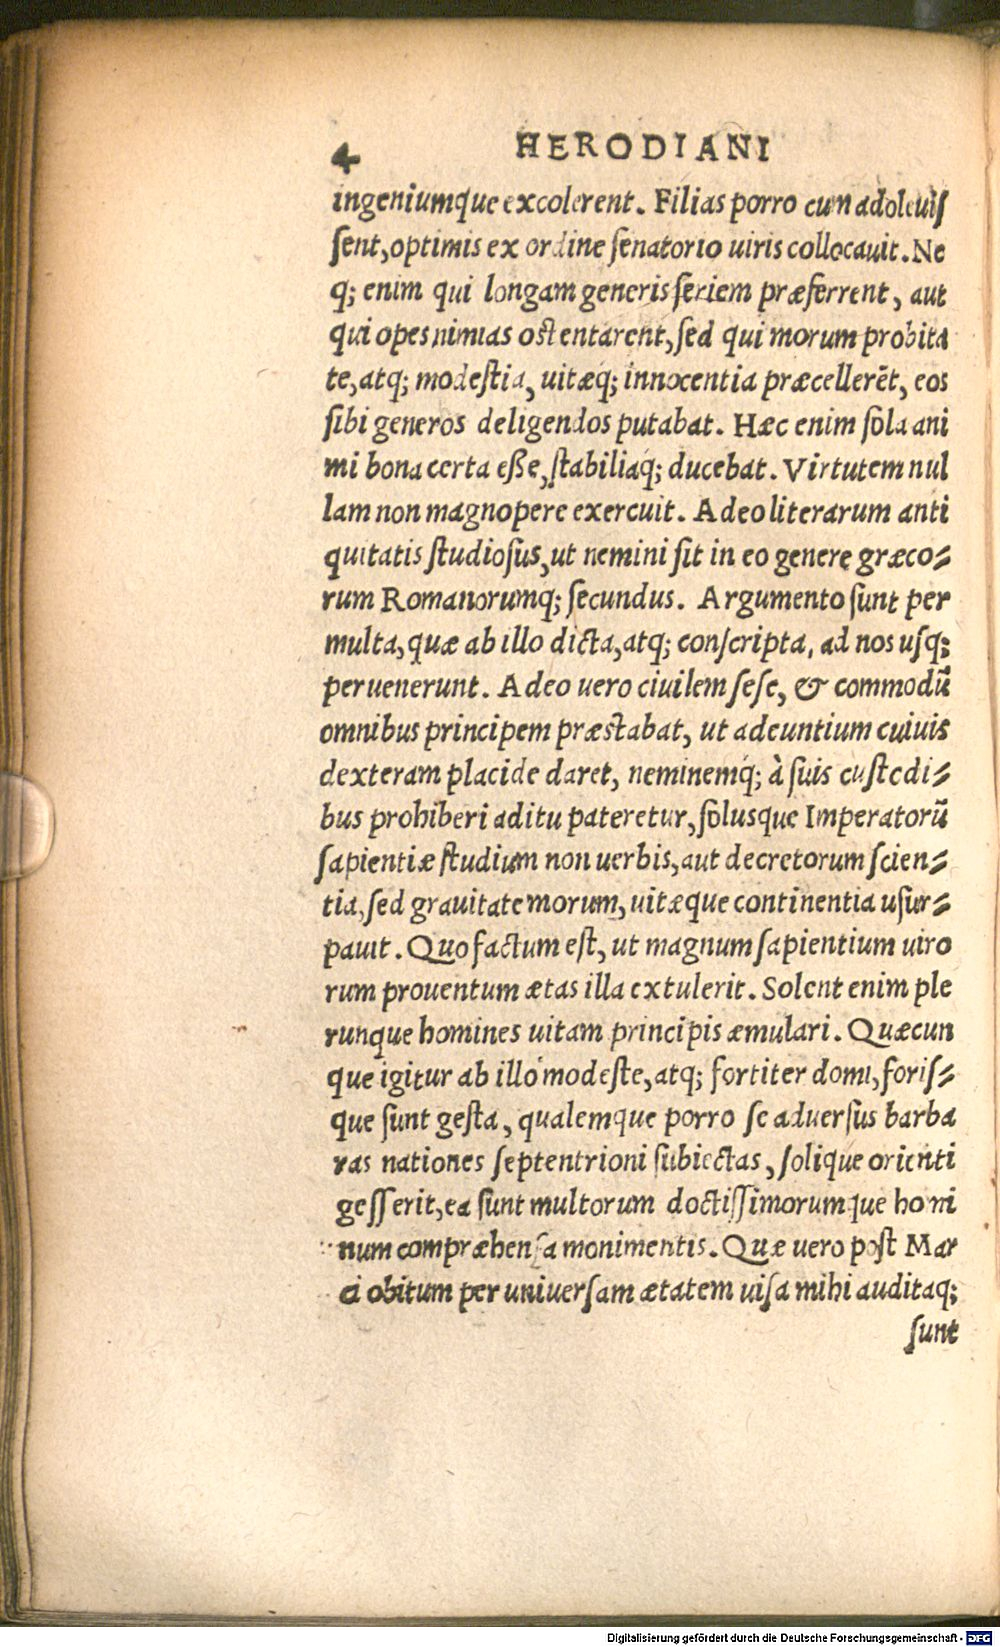 4 HERODIANI
ingeniumque excolerent. Filias porro cum adoleuis
sent, optimis ex ordine senatorio uiris collocauit. Ne
q; enim qui longam generis seriem præferrent, aut
qui opes nimias ostentarent, sed qui morum probita
te, atq; modestia, uitæq; innocentia præcellerēt, eos
sibi generos deligendos putabat. Hæc enim sola ani
mi bona certa eße, stabiliaq; ducebat. Virtutem nul
lam non magnopere exercuit. Adeo literarum anti
quitatis studiosus, ut nemini sit in eo genere græco⸗
rum Romanorumq; secundus. Argumento sunt per
multa, quæ ab illo dicta, atq; conscripta, ad nos usq;
peruenerunt. Adeo uero ciuilem sese, & commodū
omnibus principem præstabat, ut adeuntium cuiuis
dexteram placide daret, neminemq́; à suis custodi⸗
bus prohiberi aditu pateretur, solusque Imperatorū
sapientiæ studium non uerbis, aut decretorum scien⸗
tia, sed grauitate morum, uitæque continentia usur⸗
pauit. Quo factum est, ut magnum sapientium uiro
rum prouentum ætas illa extulerit. Solent enim ple
runque homines uitam principis æmulari. Quæcun
que igitur ab illo modeste, atq; fortiter domi, foris⸗
que sunt gesta, qualemque porro se aduersus barba
ras nationes septentrioni subiectas, solique orienti
gesserit, ea sunt multorum doctissimorumque homi
num compræhensa monimentis. Quæ uero post Mar
ci obitum per uniuersam ætatem uisa mihi auditaq;
sunt
Digitalisierung gefördert durch die Deutsche Forschungsgemeinschaft - DFG